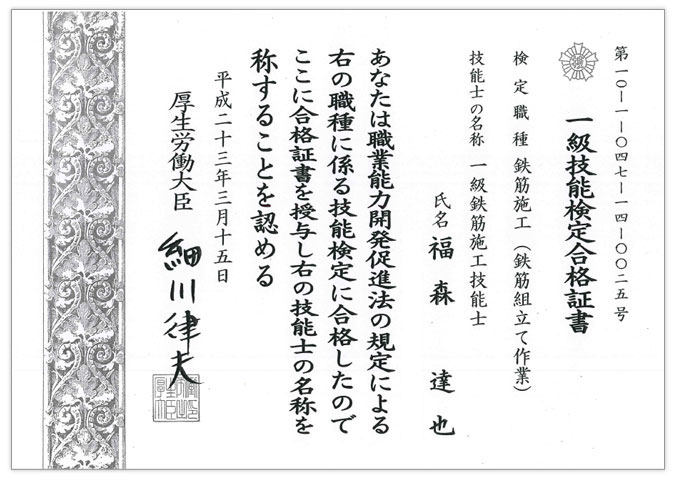 第一〇—一—〇四七—一四—〇〇二五号
一級技能検定合格証書
検定職種 鉄筋施工（鉄筋組立て作業）
技能士の名称 一級鉄筋施工技能士
氏名 福森 達也
あなたは職業能力開発促進法の規定による
右の職種に係る技能検定に合格したので
ここに合格証書を授与し右の技能士の名称を
称することを認める
平成二十三年三月十五日
厚生労働大臣 細川律夫